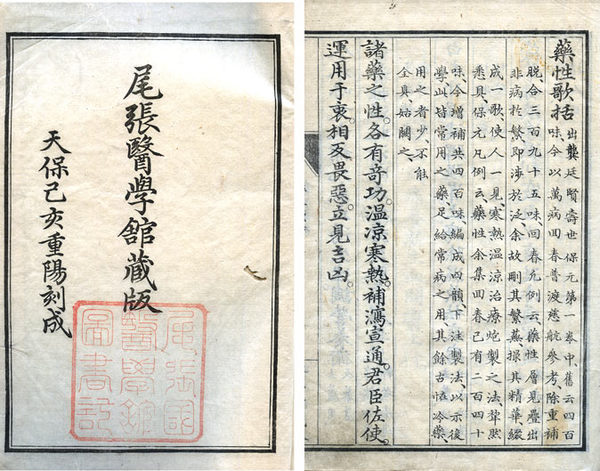 尾張醫學館藏版
天保己亥重陽刻成
尾張國
醫學館
圖書記
藥性歌括
出龔廷賢壽世保元第一卷中、舊云四百
味、今以萬病回春普渡慈航參考除重補
脫合三百九十五味回春凡例云藥性層見疊出
非病於繁、即涉於泛、余故刪其繁蕪、撮其精華綴
成一歌、使人一見、寒熱溫涼治療炮製之法、犖然
悉具、保元凡例云、藥性余集回春已有二百四十
味、今增補共四百味、編成四韻下注製法、以示後
學此皆常用之藥、足給常病之用其餘古怪冷藥
用之者少、不能
全具、姑闕之
諸藥之性。各有奇功。溫涼寒熱。補瀉宣通。君臣佐使。
運用于衷。相反畏惡。立見吉凶。